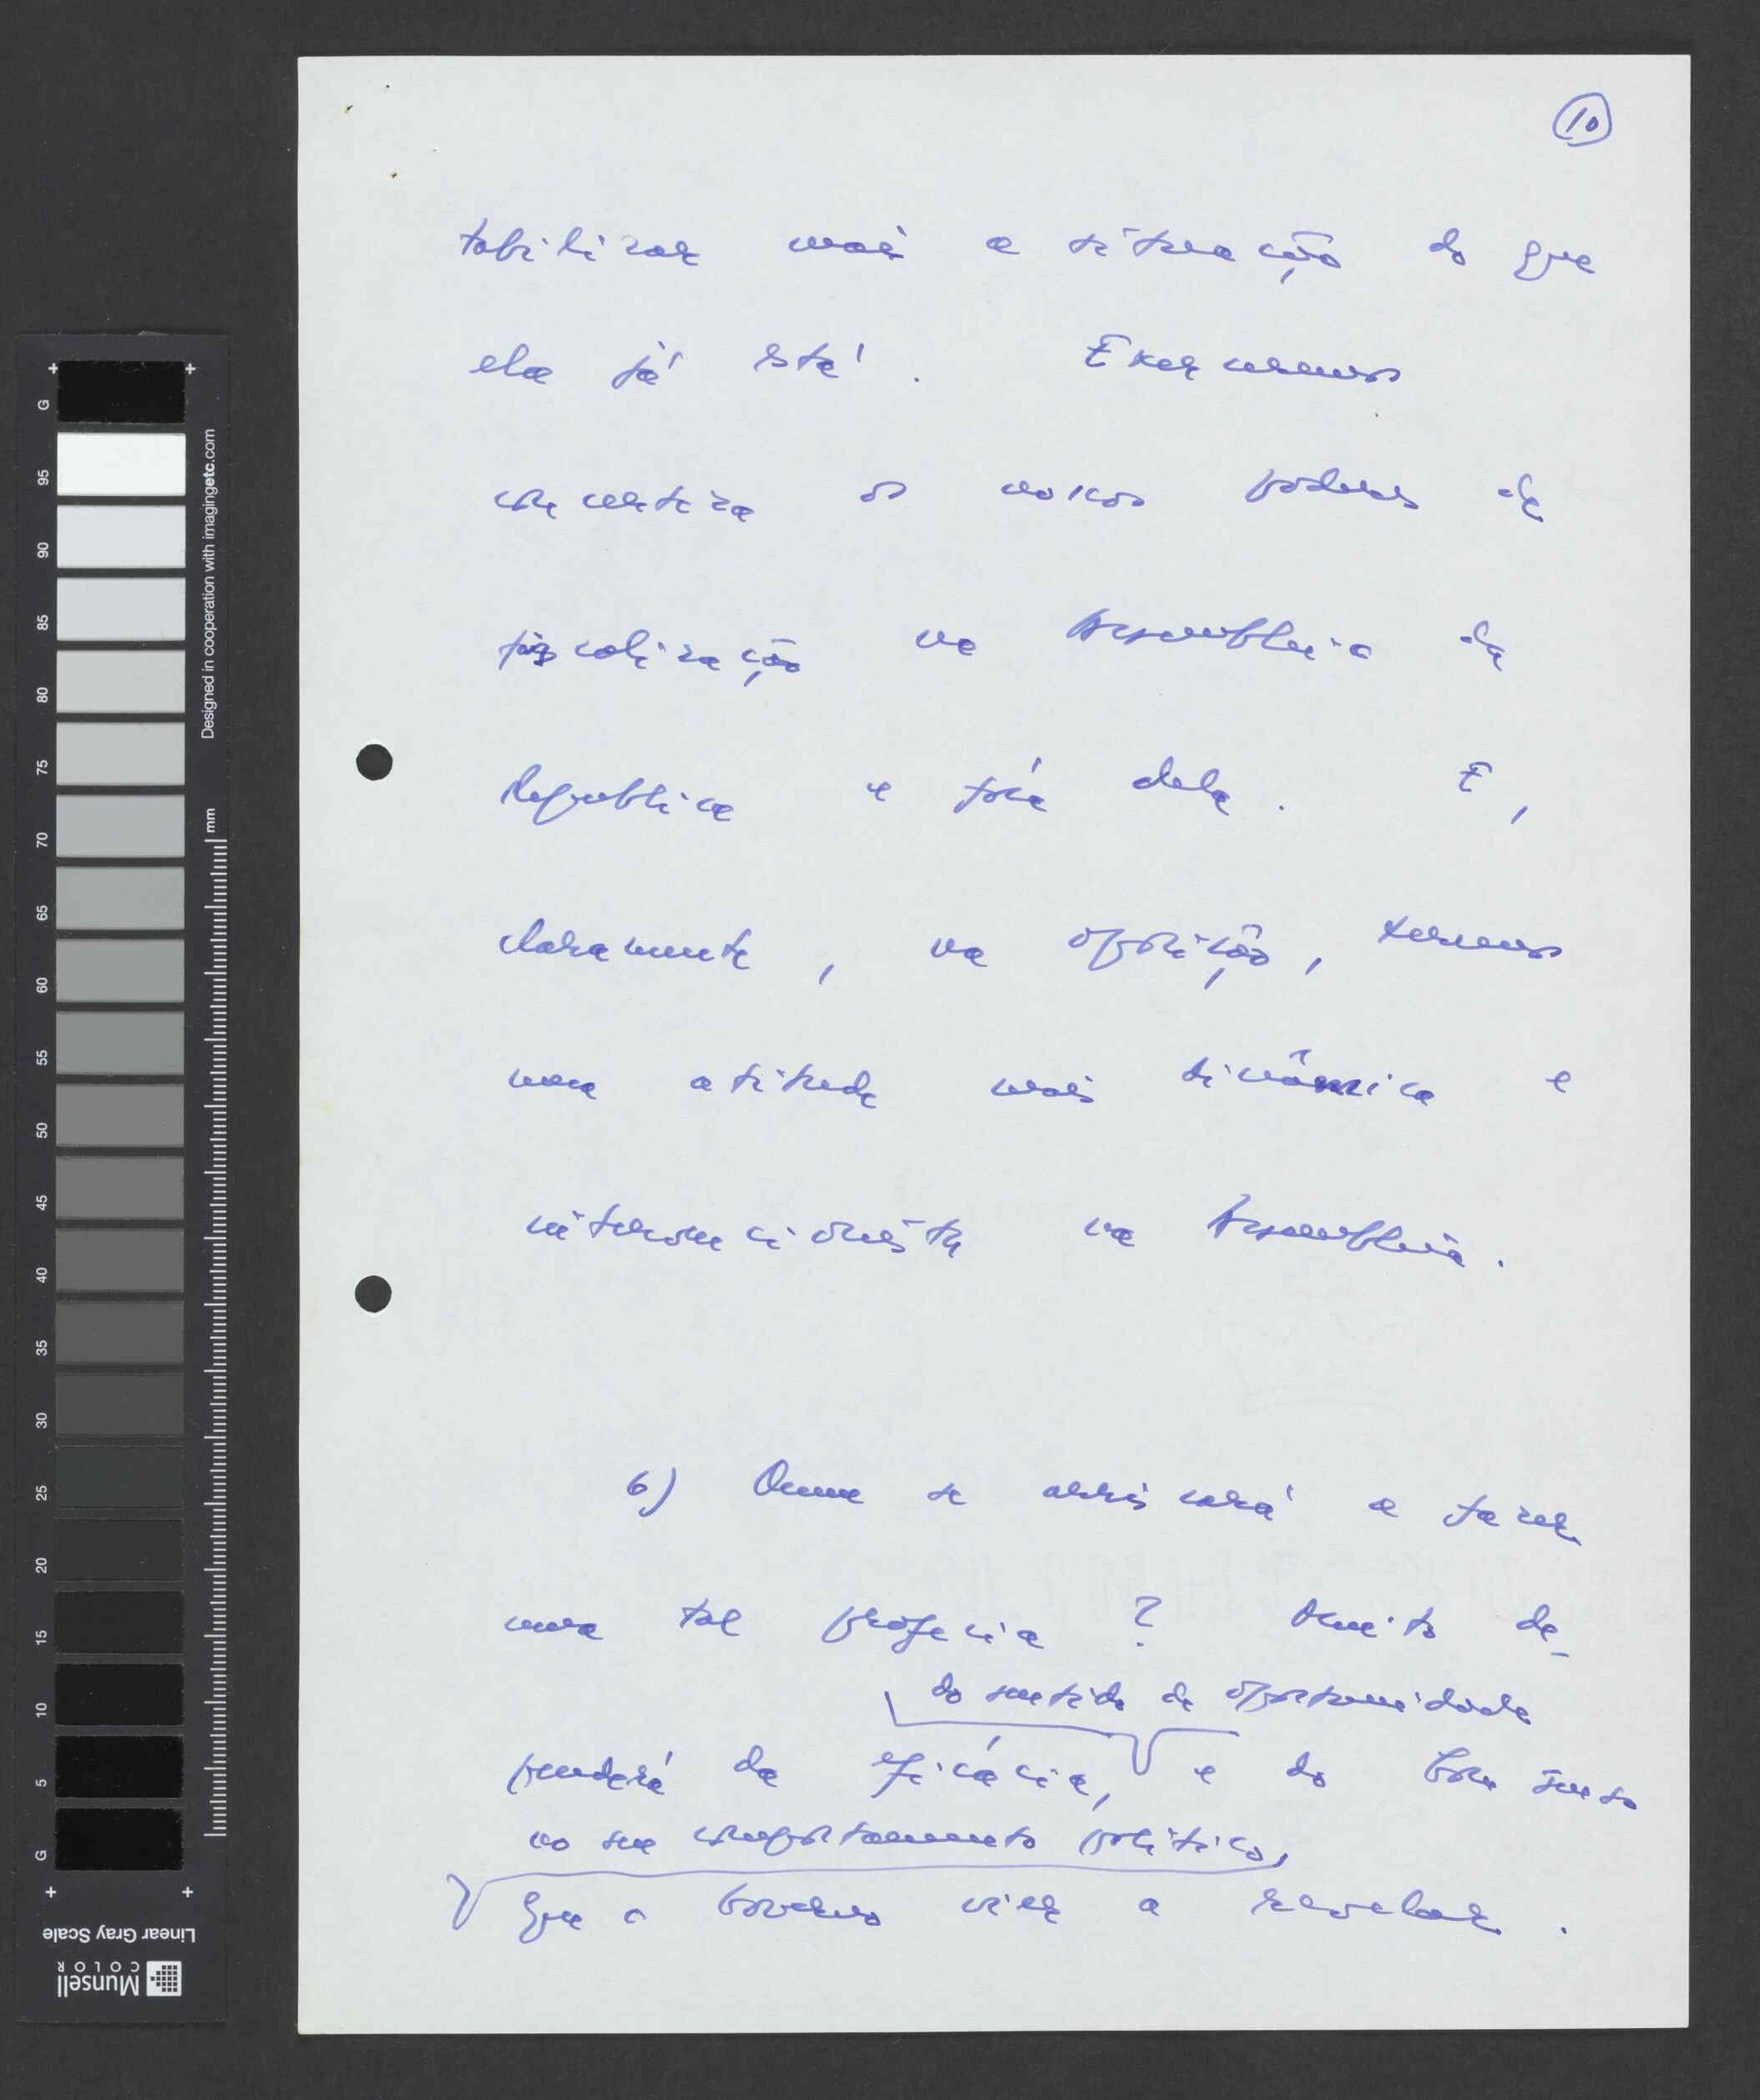 10
tabilizar mais a situação do que
ela já está. Exerceremos
com certeza os nossos poderes de
fiscalização na Assembleia da
República e fora dela. E,
claramente, na oposição, teremos
uma atitude mais dinâmica e
intervencionista na Assembleia.
6) Quem se arriscará a fazer
uma tal profecia? Muito de-
do sentido de oportunidade
penderá da eficácia, e do bom senso
no seu comportamento político,
que o Governo vier a revelar.
G 95 90 85 80 75 70 65 60 55 50 45 40 35 30 25 20 15 10 5 G
Designed in cooperation with imagingetc.com
mm
Linear Gray Scale
Munsell
COLOR